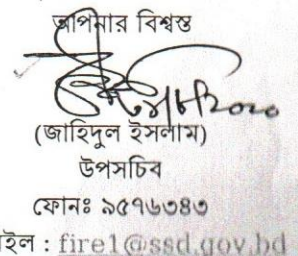 আপনার বিশ্বস্ত
(জাহিদুল ইসলাম)
উপসচিব
ফোনঃ ৯৫৭৬৩৪৩
ইল : fire1@ssd.gov.bd